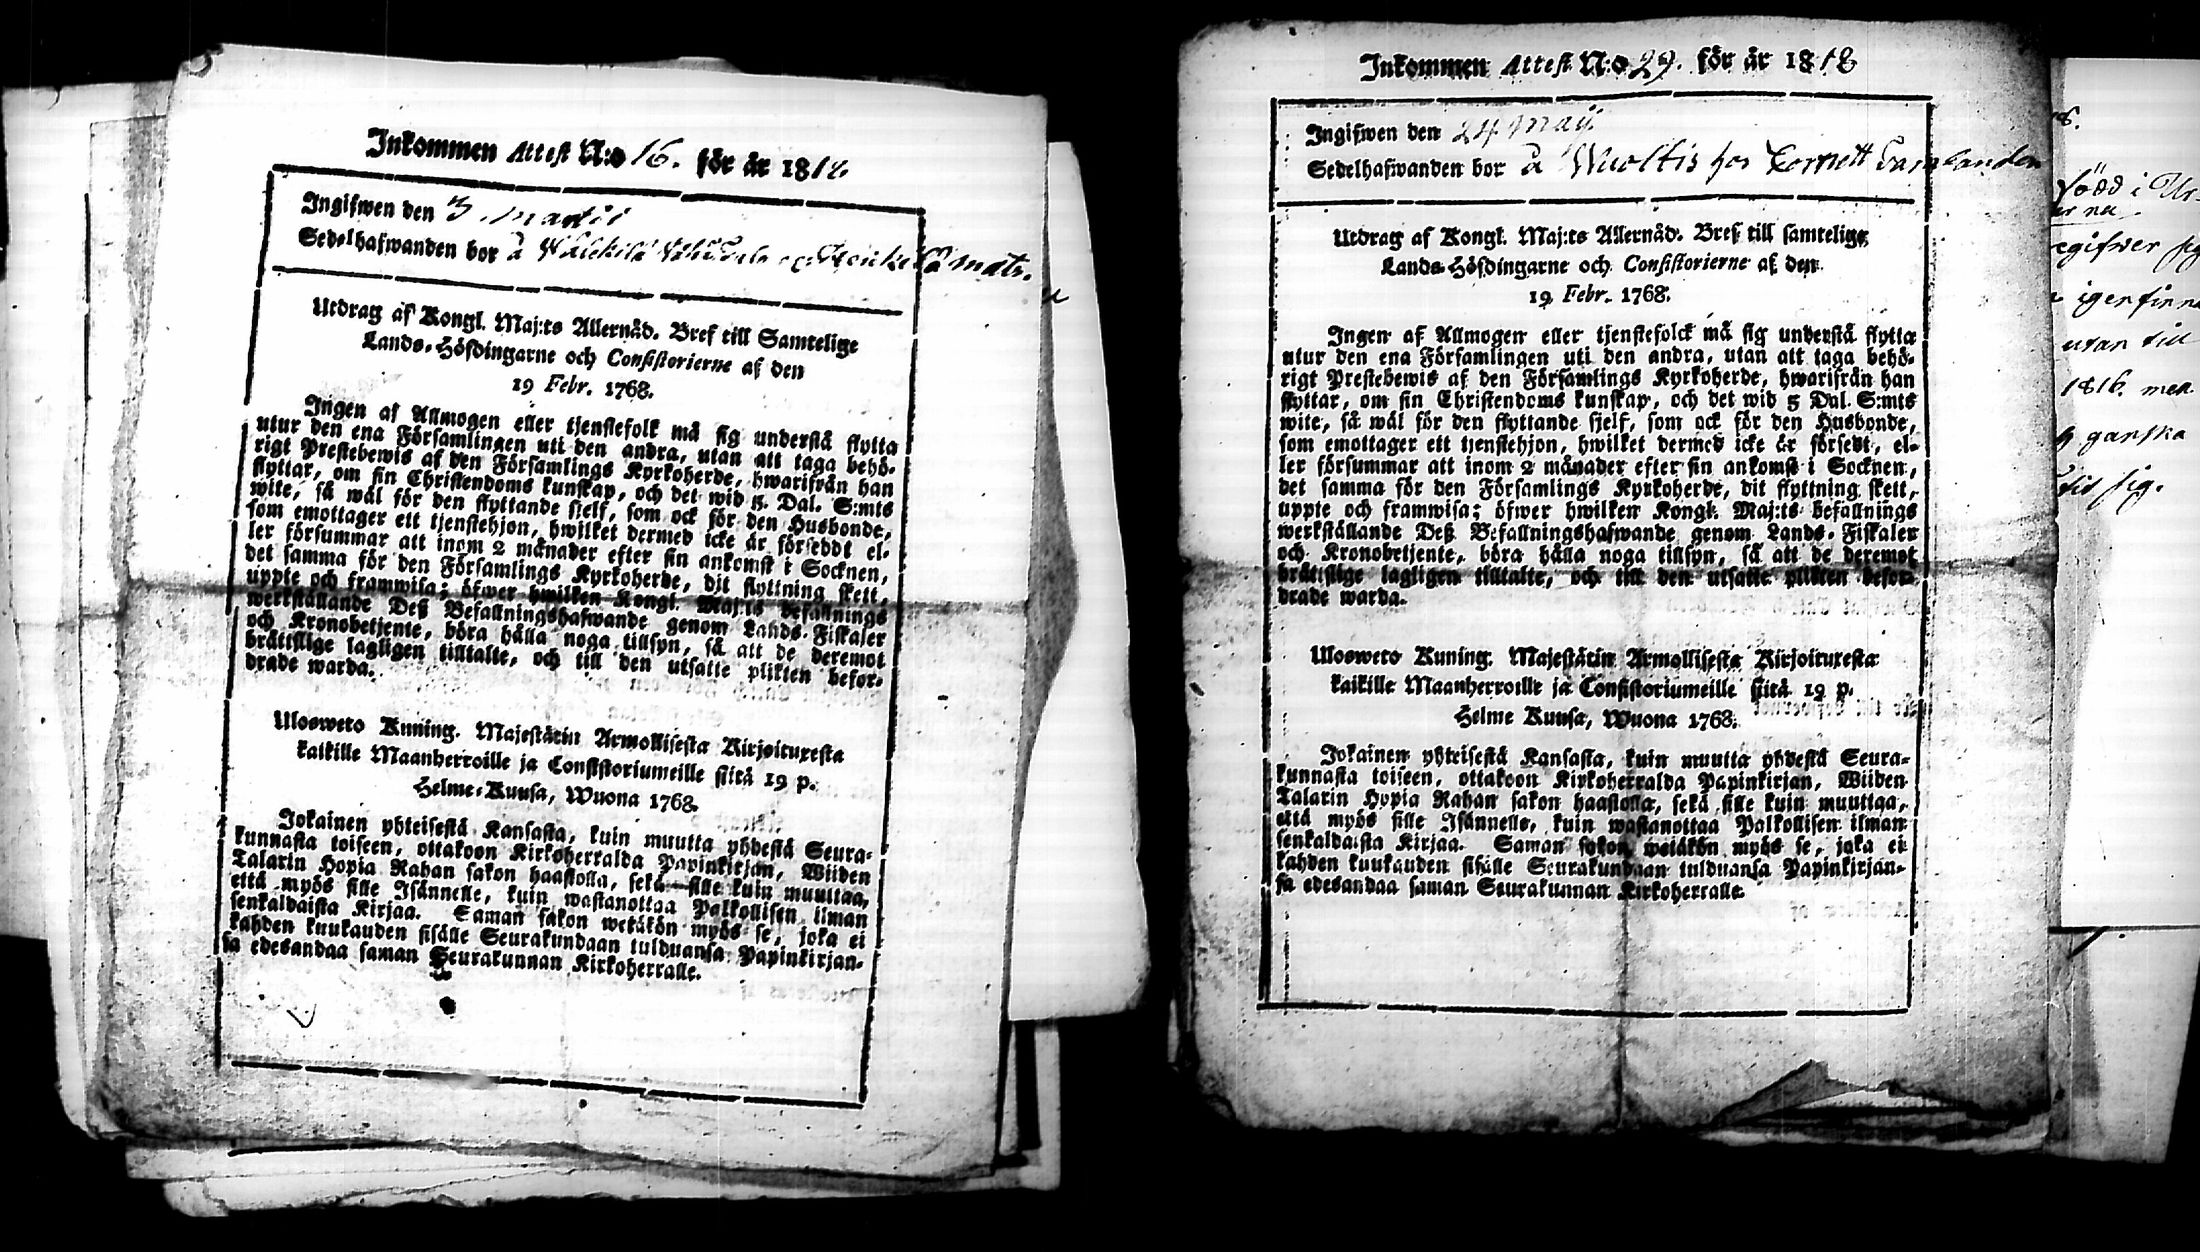 Inkommen Attest N:o 16. för år 1818.
Ingifwen den 3. Martii
Sedelhafwanden bor å
Utdrag af Kongl. Maj:ts Allernåd. Bref till Samtelige
Lands-Höfdingarne och Consistorierne af den
19 Febr. 1768.
Ingen af Allmogen eller tjenstefolk må sig understå flytta
utur den ena Församlingen uti den andra, utan att taga behö-
rigt Prestebewis af den Församlings Kyrkoherde, hwarifrån han
flyttar, om sin Christendoms kunskap, och det wid 5. Dal. S:mts
wite, så wäl för den flyttande sjelf, som ock för den Husbonde,
som emottager ett tjenstehjon, hwilket dermed icke är försedt el-
ler försummar att inom 2 månader efter sin ankomst i Socknen,
det samma för den Församlings Kyrkoherde, dit flyttning skett,
uppte och framwisa; öfwer hwilken Kongl. Maj:ts befallnings
werkställande Deß Befallningshafwande genom Lands-Fiskaler
och Kronobetjente, böra hålla noga tillsyn, så att de deremot
bråttslige lagligen tilltalte, och till den utsatte plikten befor-
drade warda.
Ulosweto Kuning. Majestätin Armollisesta Kirjoituxesta
kaikille Maanherroille ja Consistoriumeille siitä 19 p.
Helme-Kuusa, Wuona 1768.
Jokainen yhteisestä Kansasta, kuin muutta yhdestä Seura-
kunnasta toiseen, ottakoon Kirkoherralda Papinkirjan, Wiiden
Talarin Hopia Rahan sakon haastolla, sekä sille kuin muuttaa,
että myös sille Isännelle, kuin wastanottaa Palkollisen ilman
senkaldaista Kirjaa. Saman sakon wetäkön myös se, joka ei
kahden kuukauden sisälle Seurakundaan tulduansa Papinkirjan-
sa edesandaa saman Seurakunnan Kirkoherralle.
Inkommen Attest N:o 29. för år 1818
Ingifwen den 24 Maij
Sedelhafwanden bor å Wuoltis hos Cornett
Utdrag af Kongl. Maj:ts Allernåd. Bref till samtelige
Lands-Höfdingarne och Consistorierne af den
19 Febr. 1768.
Ingen af Allmogen eller tjenstefolck må sig understå flytta
utur den ena Församlingen uti den andra, utan att taga behö-
rigt Prestebewis af den Församlings Kyrkoherde, hwarifrån han
flyttar, om sin Christendoms kunskap, och det wid 5 Dal. S:mts
wite, så wäl för den flyttande sjelf, som ock för den Husbonde,
som emottager ett tjenstehjon, hwilket dermed icke är försedt, el-
ler försummar att inom 2 månader efter sin ankomst i Socknen,
det samma för den Församlings Kyrkoherde, dit flyttning skett,
uppte och framwisa; öfwer hwilken Kongl. Maj:ts befallnings
werkställande Deß Befallningshafwande genom Lands-Fiskaler
och Kronobetjente, böra hålla noga tillsyn, så att de deremot
bråttslige lagligen tilltalte, och till den utsatte plikten befor-
drade warda.
Ulosweto Kuning. Majestätin Armollisesta Kirjoituxesta
kaikille Maanherroille ja Consistoriumeille siitä 19 p.
Helme Kuusa, Wuona 1768.
Jokainen yhteisestä Kansasta, kuin muutta yhdestä Seura-
kunnasta toiseen, ottakoon Kirkoherralda Papinkirjan, Wiiden
Talarin Hopia Rahan sakon haastolla, sekä sille kuin muuttaa,
että myös sille Isännelle, kuin wastanottaa Palkollisen ilman
senkaldaista Kirjaa. Saman sakon wetäkön myös se, joka ei
kahden kuukauden sisälle Seurakundaan tulduansa Papinkirjan-
sa edesandaa saman Seurakunnan Kirkoherralle.
född i
igenfinna
utan till
1816. men
ganska
sig.